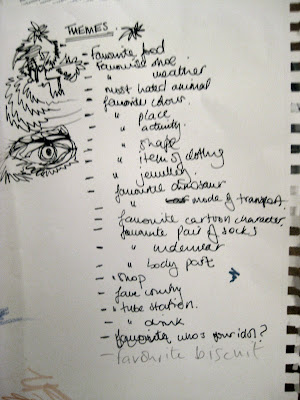 THEMES
- Favourite food
Favourite shoe
" weather
- most hated animal
favourite colour.
- " place
- " activity.
- " shape
- " item of clothing
- " jewellery.
- favourite dinosaur
- " mode of transport.
- favourite cartoon character.
- favourite pair of socks
- " underwear
- " body part
- " shop
- fave country
- " tube station.
- " drink
- favourite who's your idol?
- favourite biscuit